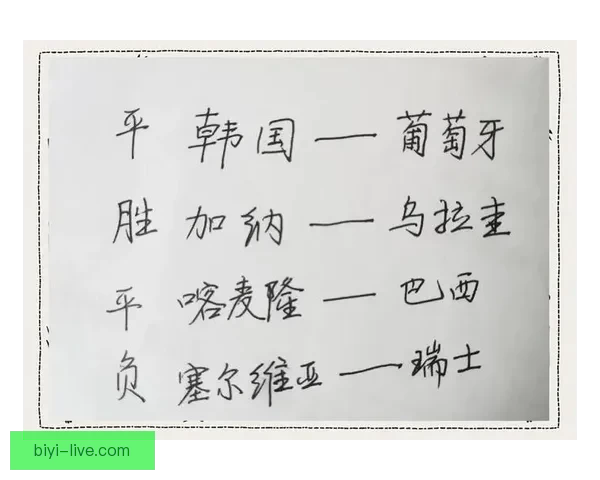 平 韩国 — 葡萄牙
胜 加纳 — 乌拉圭
平 喀麦隆 — 巴西
负 塞尔维亚 — 瑞士
biyi-live.com